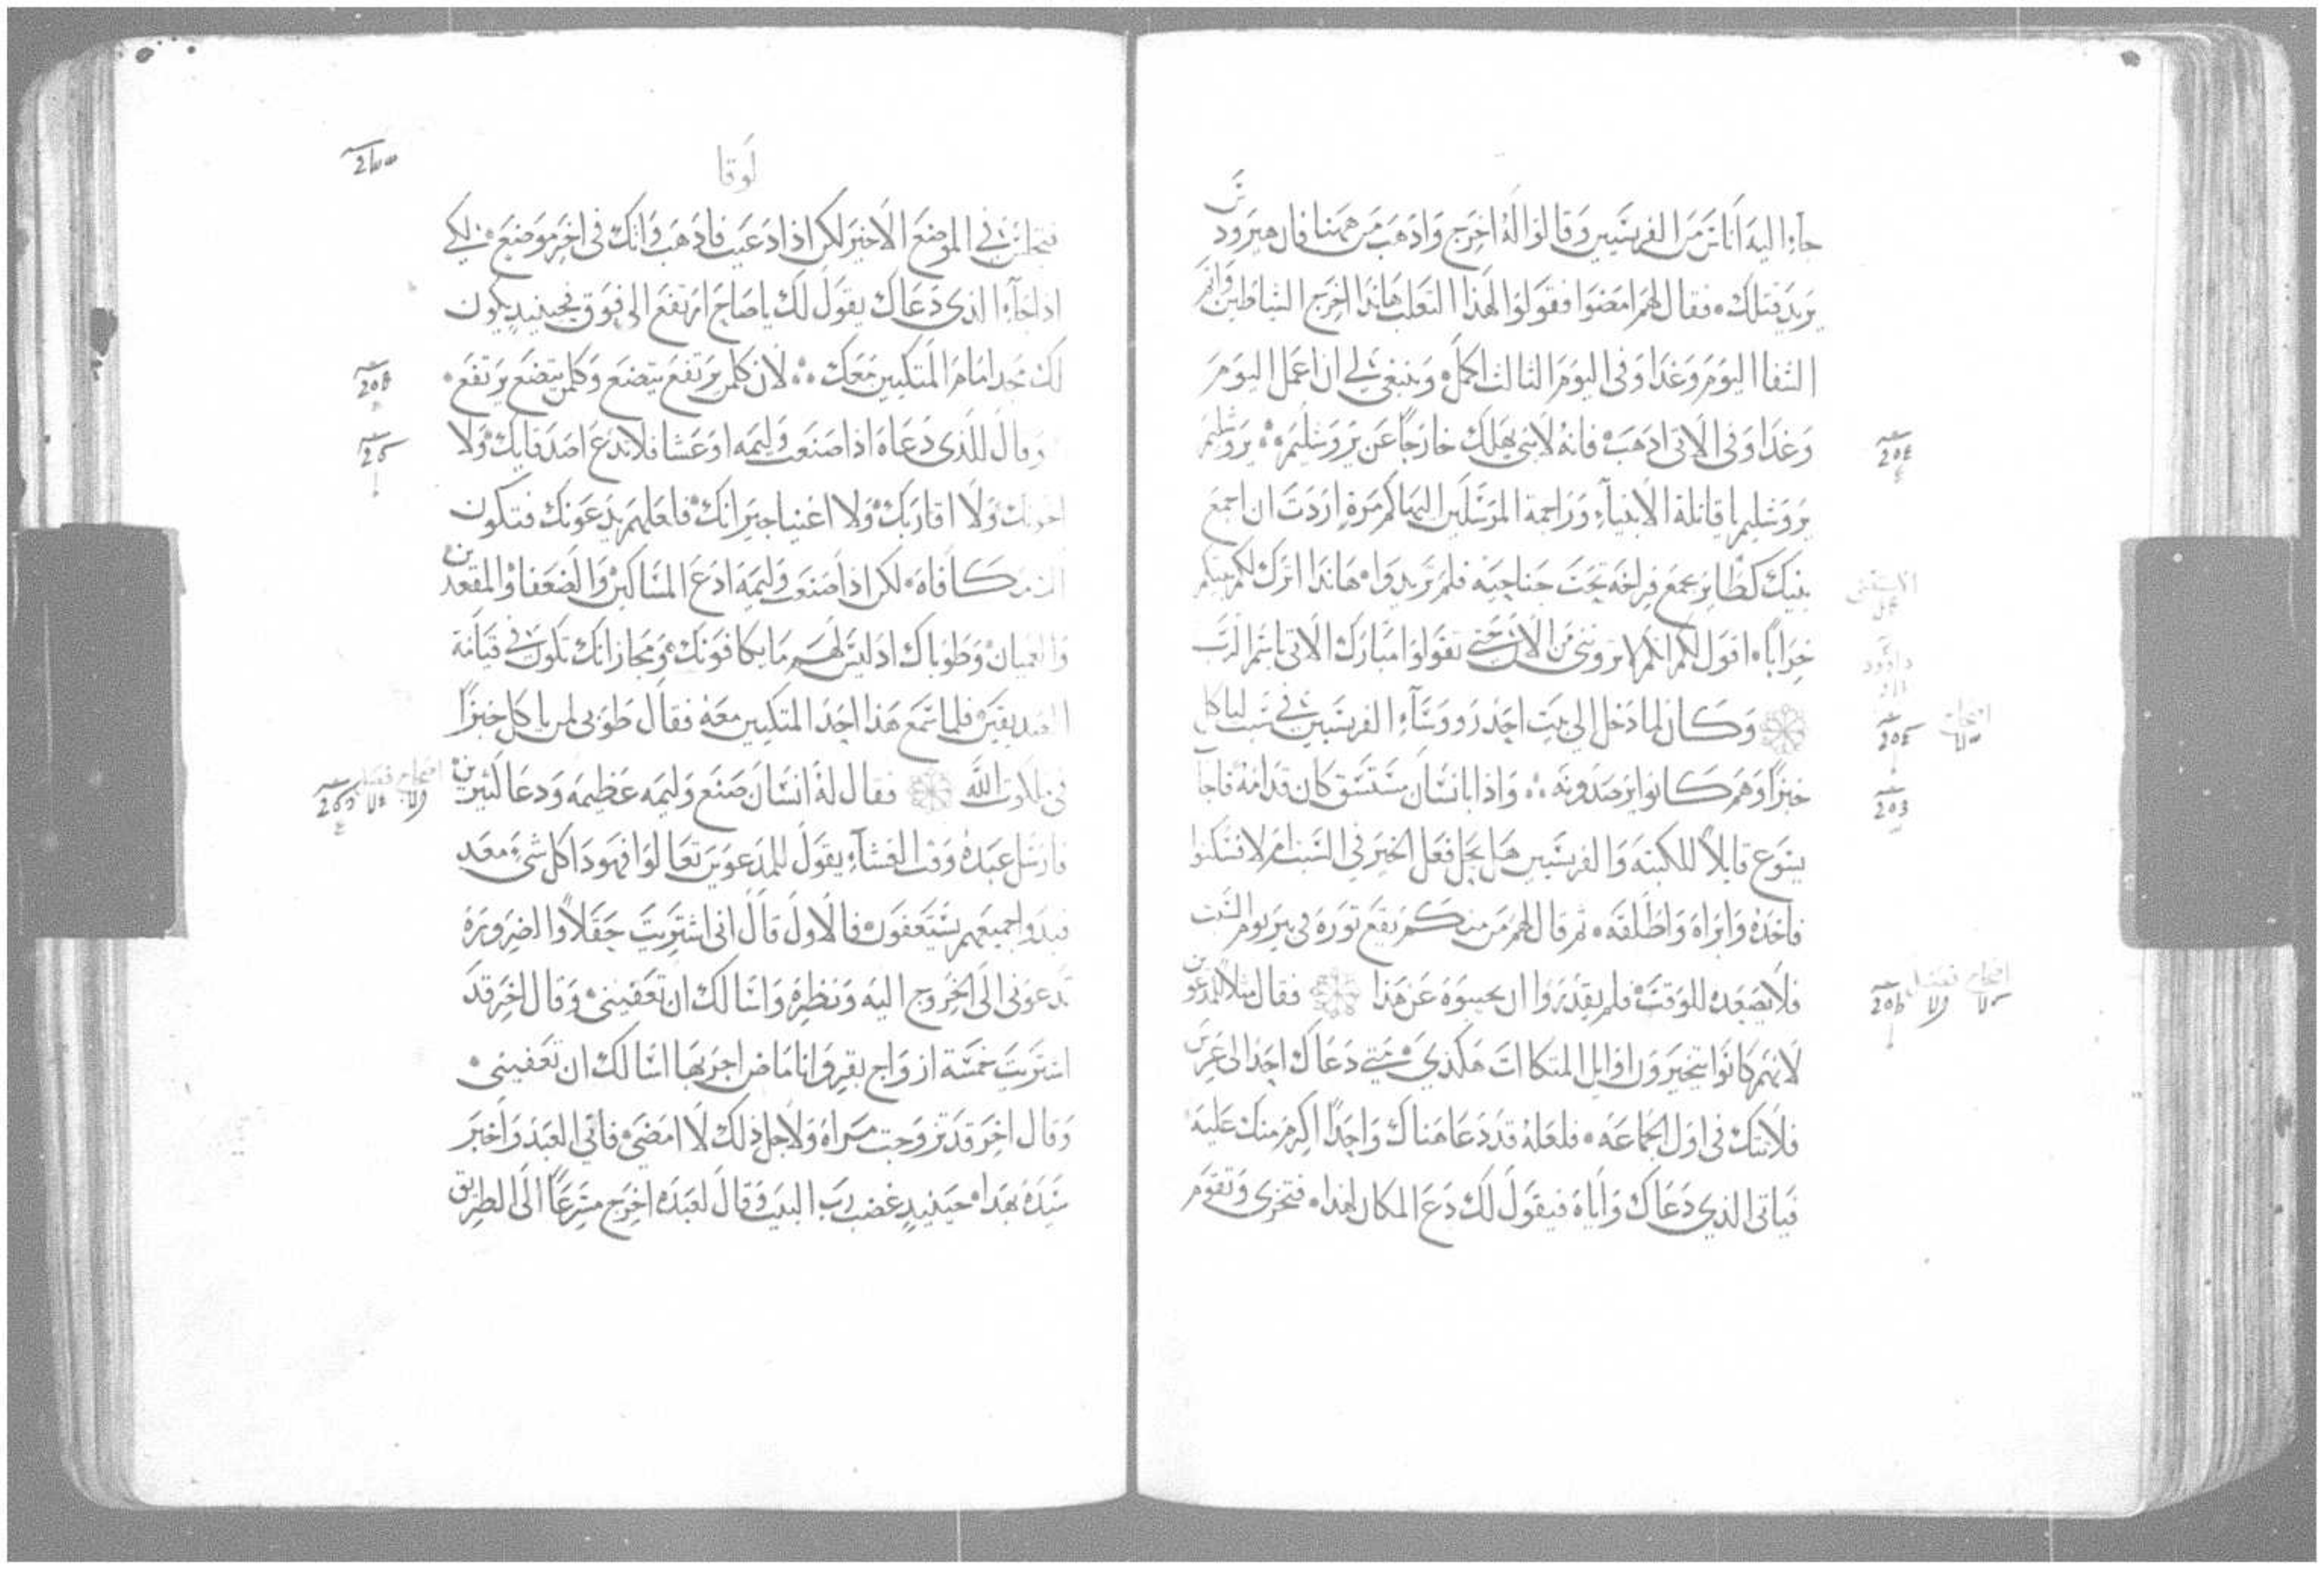 جاء اليه اناس من الفريسيين وقالوا له اخرج واذهب من ههنا فان هيرودس
يريد قتلك فقال لهم امضوا فقولوا لهذا الثعلب هانذا اخرج الشياطين واتم
الشفا اليوم وغدا وفى اليوم الثالث اكمل وينبغى لى ان اعمل اليوم
وغدا وفى الاتى اذهب فانه لا نبى يهلك خارجا عن يروشليم يروشليم
يروشليم يا قاتلة الانبياء وراجمة المرسلين اليها كم مرة اردت ان اجمع
بنيك كطاير يجمع فراخه تحت جناحيه فلم تريدوا هانذا اترك لكم بيتكم
خرابا اقول لكم انكم لا ترونى من الان حتى تقولوا مبارك الاتى باسم الرب
وكان لما دخل الى بيت احد رووساء الفريسيين فى سبت لياكل
خبزا وهم كانوا يرصدونه واذا بانسان مستسق كان قدامه فاجاب
يسوع قايلا للكتبه والفريسيين هل يحل فعل الخير فى السبت ام لا فسكتوا
فاخذه وابراه واطلقه ثم قال لهم من منكم يقع ثوره فى بير يوم السبت
فلا يصعده للوقت فلم يقدروا ان يجيبوه عن هذا فقال مثلا للمدعوين
لانهم كانوا يتخيرون اوايل المتكاات هكذى متى دعاك احد الى عرس
فلا تتك فى اول الجماعه فلعله قد دعا هناك واحدا اكرم منك عليه
فياتى الذى دعاك واياه فيقول لك دع المكان لهذا فتخزى وتقوم
لوقا
فتجلس فى الموضع الاخير لكن اذا دعيت فاذهب واتك فى اخر موضع لكى
اذا جاء الذى دعاك يقول لك يا صاح ارتفع الى فوق فحينيذ يكون
لك مجد امام المتكيين معك لان كلمن يرتفع يتضع وكلمن يتضع يرتفع
وقال للذى دعاه اذا صنعت وليمه او عشا فلا تدع اصدقايك ولا
اخوتك ولا اقاربك ولا اغنيا جيرانك فلعلهم يدعونك فتكون
مكافاه لكن اذا صنعت وليمة ادع المساكين والضعفا والمقعدين
والعميان وطوباك اذ ليس لهم ما يكافونك ومجازاتك تكون فى قيامة
الصديقين فلما سمع هذا احد المتكيين معه فقال طوبى لمن ياكل خبزا
فى ملكوت الله فقال له انسان صنع وليمه عظيمه ودعا كثيرين
فارسل عبده وقت العشاء يقول للمدعوين تعالوا فهوذا كل شى معد
فبدوا جميعهم يستعفون فالاول قال انى اشتريت حقلا والضرورة
تدعونى الى الخروج اليه ونظره واسالك ان تعفينى وقال اخر قد
اشتريت خمسة ازواج بقر وانا ماض اجربها اسالك ان تعفينى
وقال اخر قد تزوجت مراة ولاجل ذلك لا امضى فاتى العبد واخبر
سيده بهذا حينيذ غضب رب البيت وقال لعبده اخرج مسرعا الى الطريق